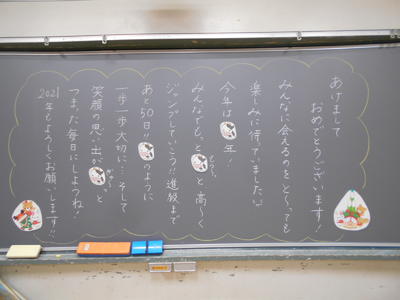 あけまして
おめでとうございます！
みんなに会えるのをと〜っても
楽しみに待っていました!!
今年は年！
みんなでもっともっと高〜く
ジャンプしていこう!!進級まで
あと50日!!のように
一歩一歩大切に…そして
笑顔の思い出がぎゅ〜っと
つまった毎日にしようね！
2021年もよろしくお願いします!!